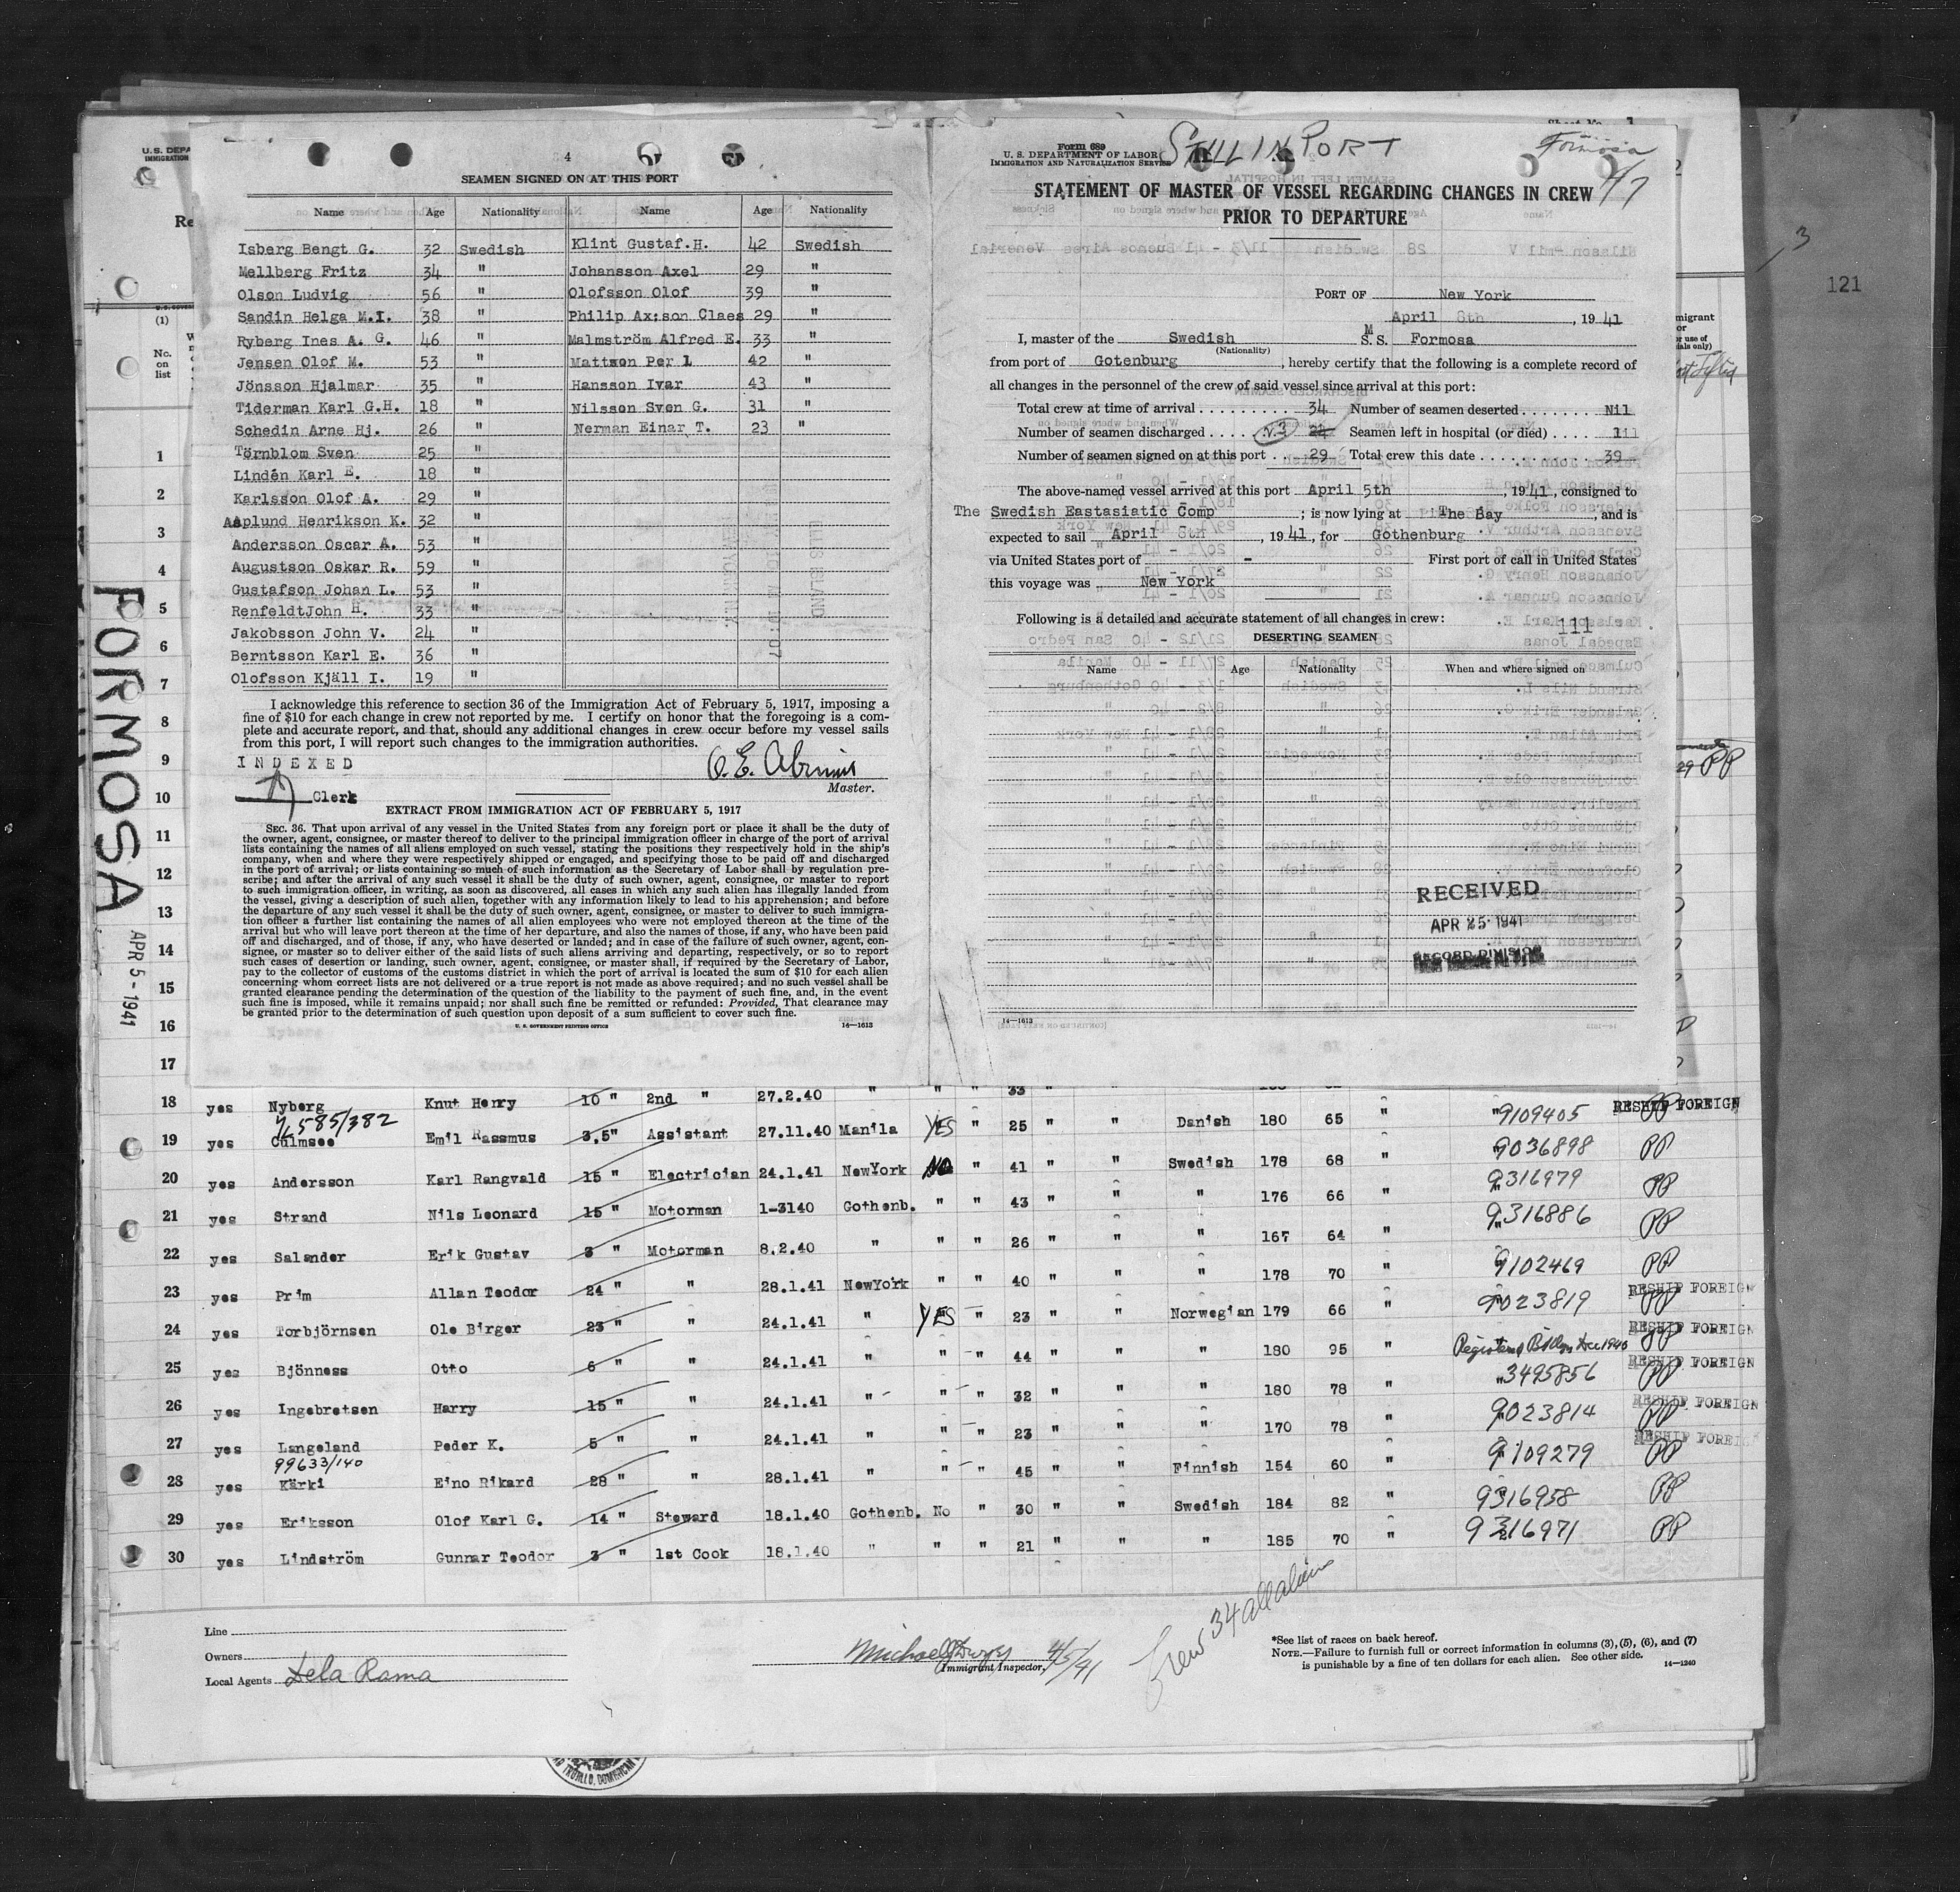 4
SEAMEN SIGNED ON AT THIS PORT
Name Age Nationality Name Age Nationality
Isberg Bengt G. 32 Swedish Klint Gustaf.H. 42 Swedish
Mellberg Fritz 34 " Johansson Axel 29 "
Olson Ludvig 56 " Olofsson Olof 39 "
Sandin Helga M.I. 38 " Philip Ax:son Claes 29 "
Ryberg Ines A. G. 46 " Malmström Alfred E. 33 "
Jensen Olof M. 53 " Mattson Per 1 42 "
Jönsson Hjalmar 35 " Hansson Ivar 43 "
Tiderman Karl G.H. 18 " Nilsson Sven G. 31 "
Schedin Arne Hj. 26 " Nerman Einar T. 23 "
Törnblom Sven 25 "
Lindén Karl E. 18 "
Karlsson Olof A. 29 "
Asplund Henrikson K. 32 "
Andersson Oscar A. 53 "
Augustson Oskar R. 59 "
Gustafson Johan L. 53 "
RenfeldtJohn H. 33 "
Jakobsson John V. 24 "
Berntsson Karl E. 36 "
Olofsson Kjäll I. 19 "
I acknowledge this reference to section 36 of the Immigration Act of February 5, 1917, imposing a
fine of $10 for each change in crew not reported by me. I certify on honor that the foregoing is a com-
plete and accurate report, and that, should any additional changes in crew occur before my vessel sails
from this port, I will report such changes to the immigration authorities.
INDEXED
Clerk
Master.
EXTRACT FROM IMMIGRATION ACT OF FEBRUARY 5, 1917
SEC. 36. That upon arrival of any vessel in the United States from any foreign port or place it shall be the duty of
the owner, agent, consignee, or master thereof to deliver to the principal immigration officer in charge of the port of arrival
lists containing the names of all aliens employed on such vessel, stating the positions they respectively hold in the ship's
company, when and where they were respectively shipped or engaged, and specifying those to be paid off and discharged
in the port of arrival; or lists containing so much of such information as the Secretary of Labor shall by regulation pre-
scribe; and after the arrival of any such vessel it shall be the duty of such owner, agent, consignee, or master to report
to such immigration officer, in writing, as soon as discovered, all cases in which any such alien has illegally landed from
the vessel, giving a description of such alien, together with any information likely to lead to his apprehension; and before
the departure of any such vessel it shall be the duty of such owner, agent, consignee, or master to deliver to such immigra-
tion officer a further list containing the names of all alien employees who were not employed thereon at the time of the
arrival but who will leave port thereon at the time of her departure, and also the names of those, if any, who have been paid
off and discharged, and of those, if any, who have deserted or landed; and in case of the failure of such owner, agent, con-
signee, or master so to deliver either of the said lists of such aliens arriving and departing, respectively, or so to report
such cases of desertion or landing, such owner, agent, consignee, or master shall, if required by the Secretary of Labor,
pay to the collector of customs of the customs district in which the port of arrival is located the sum of $10 for each alien
concerning whom correct lists are not delivered or a true report is not made as above required; and no such vessel shall be
granted clearance pending the determination of the question of the liability to the payment of such fine, and, in the event
such fine is imposed, while it remains unpaid; nor shall such fine be remitted or refunded: Provided, That clearance may
be granted prior to the determination of such question upon deposit of a sum sufficient to cover such fine.
U. S. GOVERNMENT PRINTING OFFICE 14—1613
Form 689
U. S. DEPARTMENT OF LABOR
IMMIGRATION AND NATURALIZATION SERVICE
STILL IN PORT
Formosa
4/7
STATEMENT OF MASTER OF VESSEL REGARDING CHANGES IN CREW
PRIOR TO DEPARTURE
PORT OF New York
April 8th, 1941
I, master of the Swedish M S. S. Formosa
(Nationality)
from port of Gotenburg, hereby certify that the following is a complete record of
all changes in the personnel of the crew of said vessel since arrival at this port:
Total crew at time of arrival 34 Number of seamen deserted Nil
Number of seamen discharged 24 Seamen left in hospital (or died) 1
Number of seamen signed on at this port 29 Total crew this date 39
The above-named vessel arrived at this port April 5th, 1941, consigned to
The Swedish Eastasiatic Comp; is now lying at The Bay, and is
expected to sail April 8th, 1941, for Gothenburg
via United States port of - First port of call in United States
this voyage was New York
Following is a detailed and accurate statement of all changes in crew:
111
DESERTING SEAMEN
Name Age Nationality When and where signed on
RECEIVED
APR 25 1941
RECORD DIVISION
14—1613
3
121
U.S. DEPA
IMMIGRATION
Re
(1)
No.
on
list
migrant
or
r use of
ials only)
29 PP
FORMOSA
APR 5 - 1941
1
2
3
4
5
6
7
8
9
10
11
12
13
14
15
16
17
18 yes Nyberg Knut Henry 10 " 2nd " 27.2.40 " " " 33 " "
4/6585/382
19 yes Culmsee Emil Rassmus 3,5" Assistant 27.11.40 Manila YES " 25 " " Danish 180 65 " 9109405 PP RESHIP FOREIGN
20 yes Andersson Karl Rangvald 15 " Electrician 24.1.41 NewYork NO " 41 " " Swedish 178 68 " 9036898 PP
21 yes Strand Nils Leonard 15 " Motorman 1-3140 Gothenb. " " 43 " " " 176 66 " 9316979 PP
22 yes Salander Erik Gustav 3 " Motorman 8.2.40 " " " 26 " " " 167 64 " 9316886 PP
23 yes Prim Allan Teodor 24 " " 28.1.41 NewYork " " 40 " " " 178 70 " 9102469 PP
24 yes Torbjörnsen Ole Birger 23 " " 24.1.41 " YES " 23 " " Norwegian 179 66 " 9023819 PP RESHIP FOREIGN
25 yes Bjönness Otto 6 " " 24.1.41 " " " 44 " " " 180 95 " Registered Bklyn Dec 1940 PP RESHIP FOREIGN
26 yes Ingebretsen Harry 15 " " 24.1.41 " " " 32 " " " 180 78 " 3495856 PP RESHIP FOREIGN
27 yes Langeland Peder K. 5 " " 24.1.41 " " " 23 " " " 170 78 " 9023814 PP RESHIP FOREIGN
99633/140
28 yes Kärki Eino Rikard 28 " " 28.1.41 " " " 45 " " Finnish 154 60 " 9109279 PP RESHIP FOREI
29 yes Eriksson Olof Karl G. 14 " Steward 18.1.40 Gothenb. No " 30 " " Swedish 184 82 " 9316958 PP
30 yes Lindström Gunnar Teodor 3 " 1st Cook 18.1.40 " " " 21 " " " 185 70 " 9316971 PP
Line
Owners
Local Agents Dela Rama
Immigrant Inspector. 4/5/41
Crew 34 all aliens
*See list of races on back hereof.
NOTE.—Failure to furnish full or correct information in columns (3), (5), (6), and (7)
is punishable by a fine of ten dollars for each alien. See other side.
14—1240
TRUJILLO, DOMINICAN